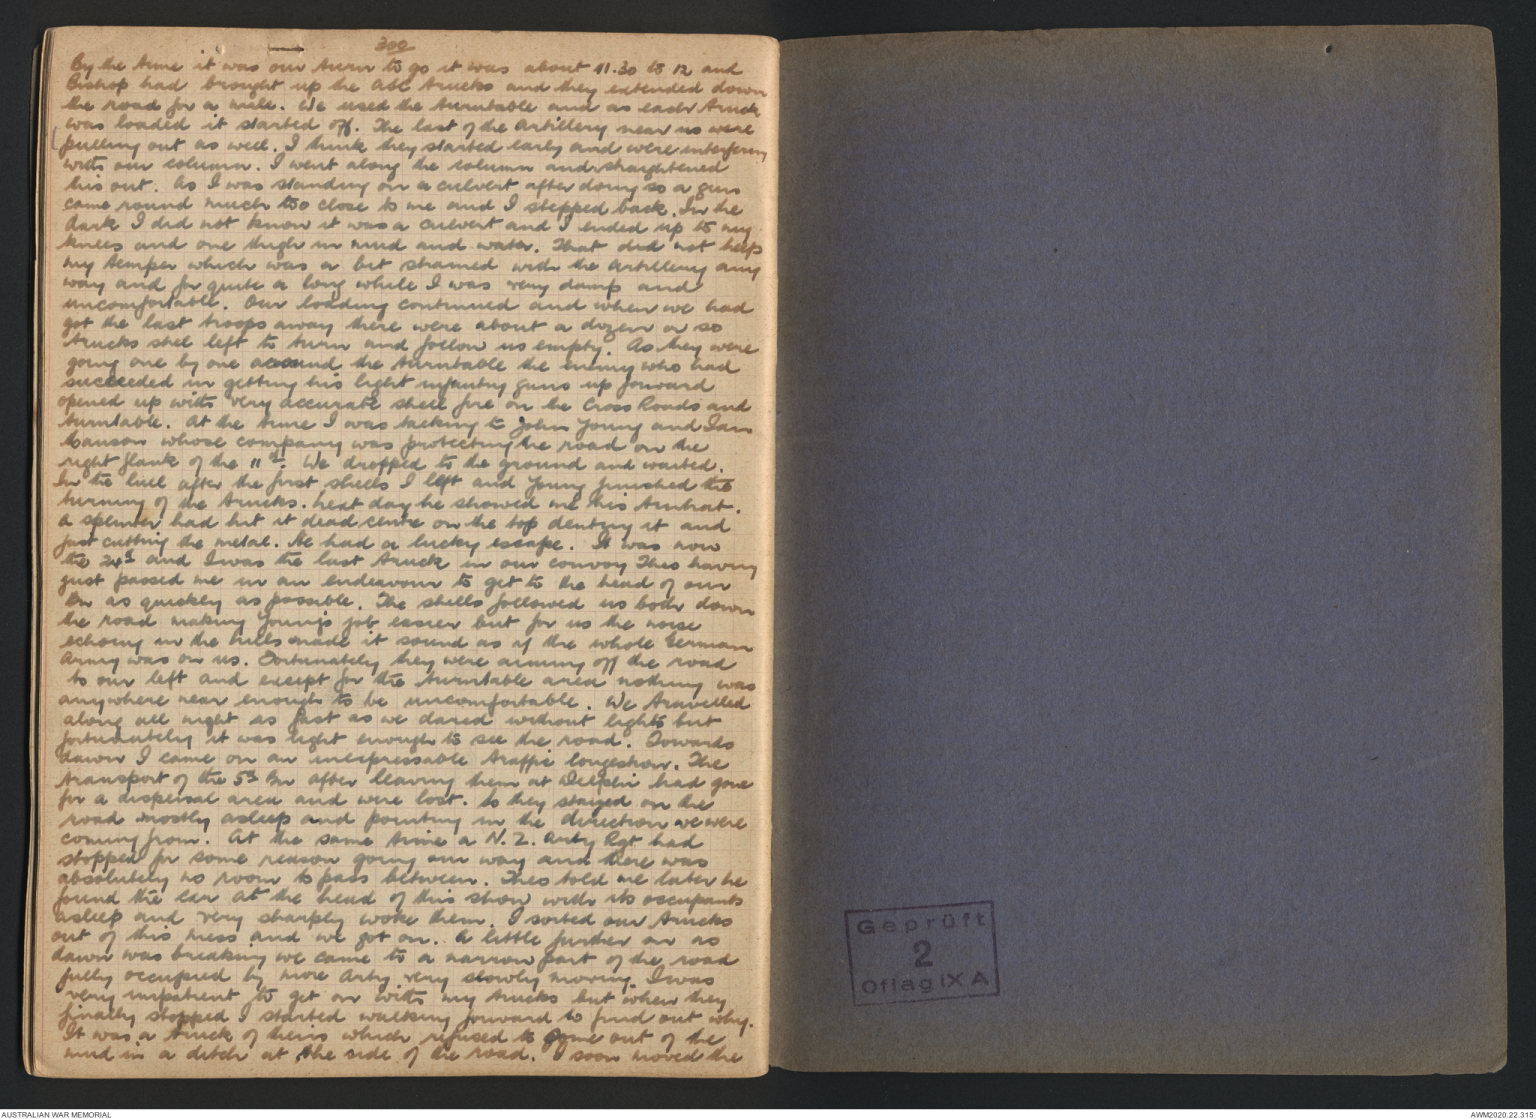 300
By the time it was our turn to go it was about 11.30 to 12 and
Bishop had brought up the ABC trucks and they extended down
the road for a mile. We used the turntable and as each truck
was loaded it started off. The last of the artillery near us were
pulling out as well. I think they started early and were interfering
with our column. I went along the column and straightened
this out. As I was standing on a culvert after doing so a gun
came round much too close to me and I stepped back. In the
dark I did not know it was a culvert and I ended up to my
knees and one thigh in mud and water. That did not help
my temper which was a bit strained with the artillery any
way and for quite a long while I was very damp and
uncomfortable. Our loading continued and when we had
got the last troops away there were about a dozen or so
trucks still left to turn and follow us empty. As they were
going one by one around the turntable the enemy who had
succeeded in getting his light infantry guns up forward
opened up with very accurate shell fire on the Cross Roads and
turntable. At the time I was talking to John Young and Ian
whose company was protecting the road on the
right flank of the 11th. We dropped to the ground and waited.
In the lull after the first shells I left and Young finished the
turning of the trucks. Next day he showed me his tin hat.
A splinter had hit it dead centre on the top denting it and
just cutting the metal. He had a lucky escape. It was now
the and I was the last truck in our convoy Theo having
just passed me in an endeavour to get to the head of our
Bn as quickly as possible. The shells followed us both down
the road making Young's job easier but for us the noise
echoing in the hills made it sound as if the whole German
Army was on us. Fortunately they were aiming off the road
to our left and except for the turntable area nothing was
anywhere near enough to be uncomfortable. We travelled
along all night as fast as we dared without lights but
fortunately it was light enough to see the road. Towards
dawn I came on an inexpressable traffic congestion. The
transport of the 5th Bn after leaving them at had gone
for a dispersal area and were lost. So they stayed on the
road mostly asleep and pointing in the direction we were
coming from. At the same time a N.Z. Arty Rgt had
stopped for some reason going our way and there was
absolutely no room to pass between. Theo told me later he
found the car at the head of this show with its occupants
asleep and very sharply woke them. I sorted our trucks
out of this mess and we got on. A little further on as
dawn was breaking we came to a narrow part of the road
fully occupied by more Arty very slowly moving. I was
very impatient to get on with my trucks but when they
finally stopped I started walking forward to find out why.
It was a truck of theirs which refused to come out of the
mud in a ditch at the side of the road. I soon moved the
Geprüft
2
Oflag IX A
AUSTRALIAN WAR MEMORIAL
AWM2020.22.315